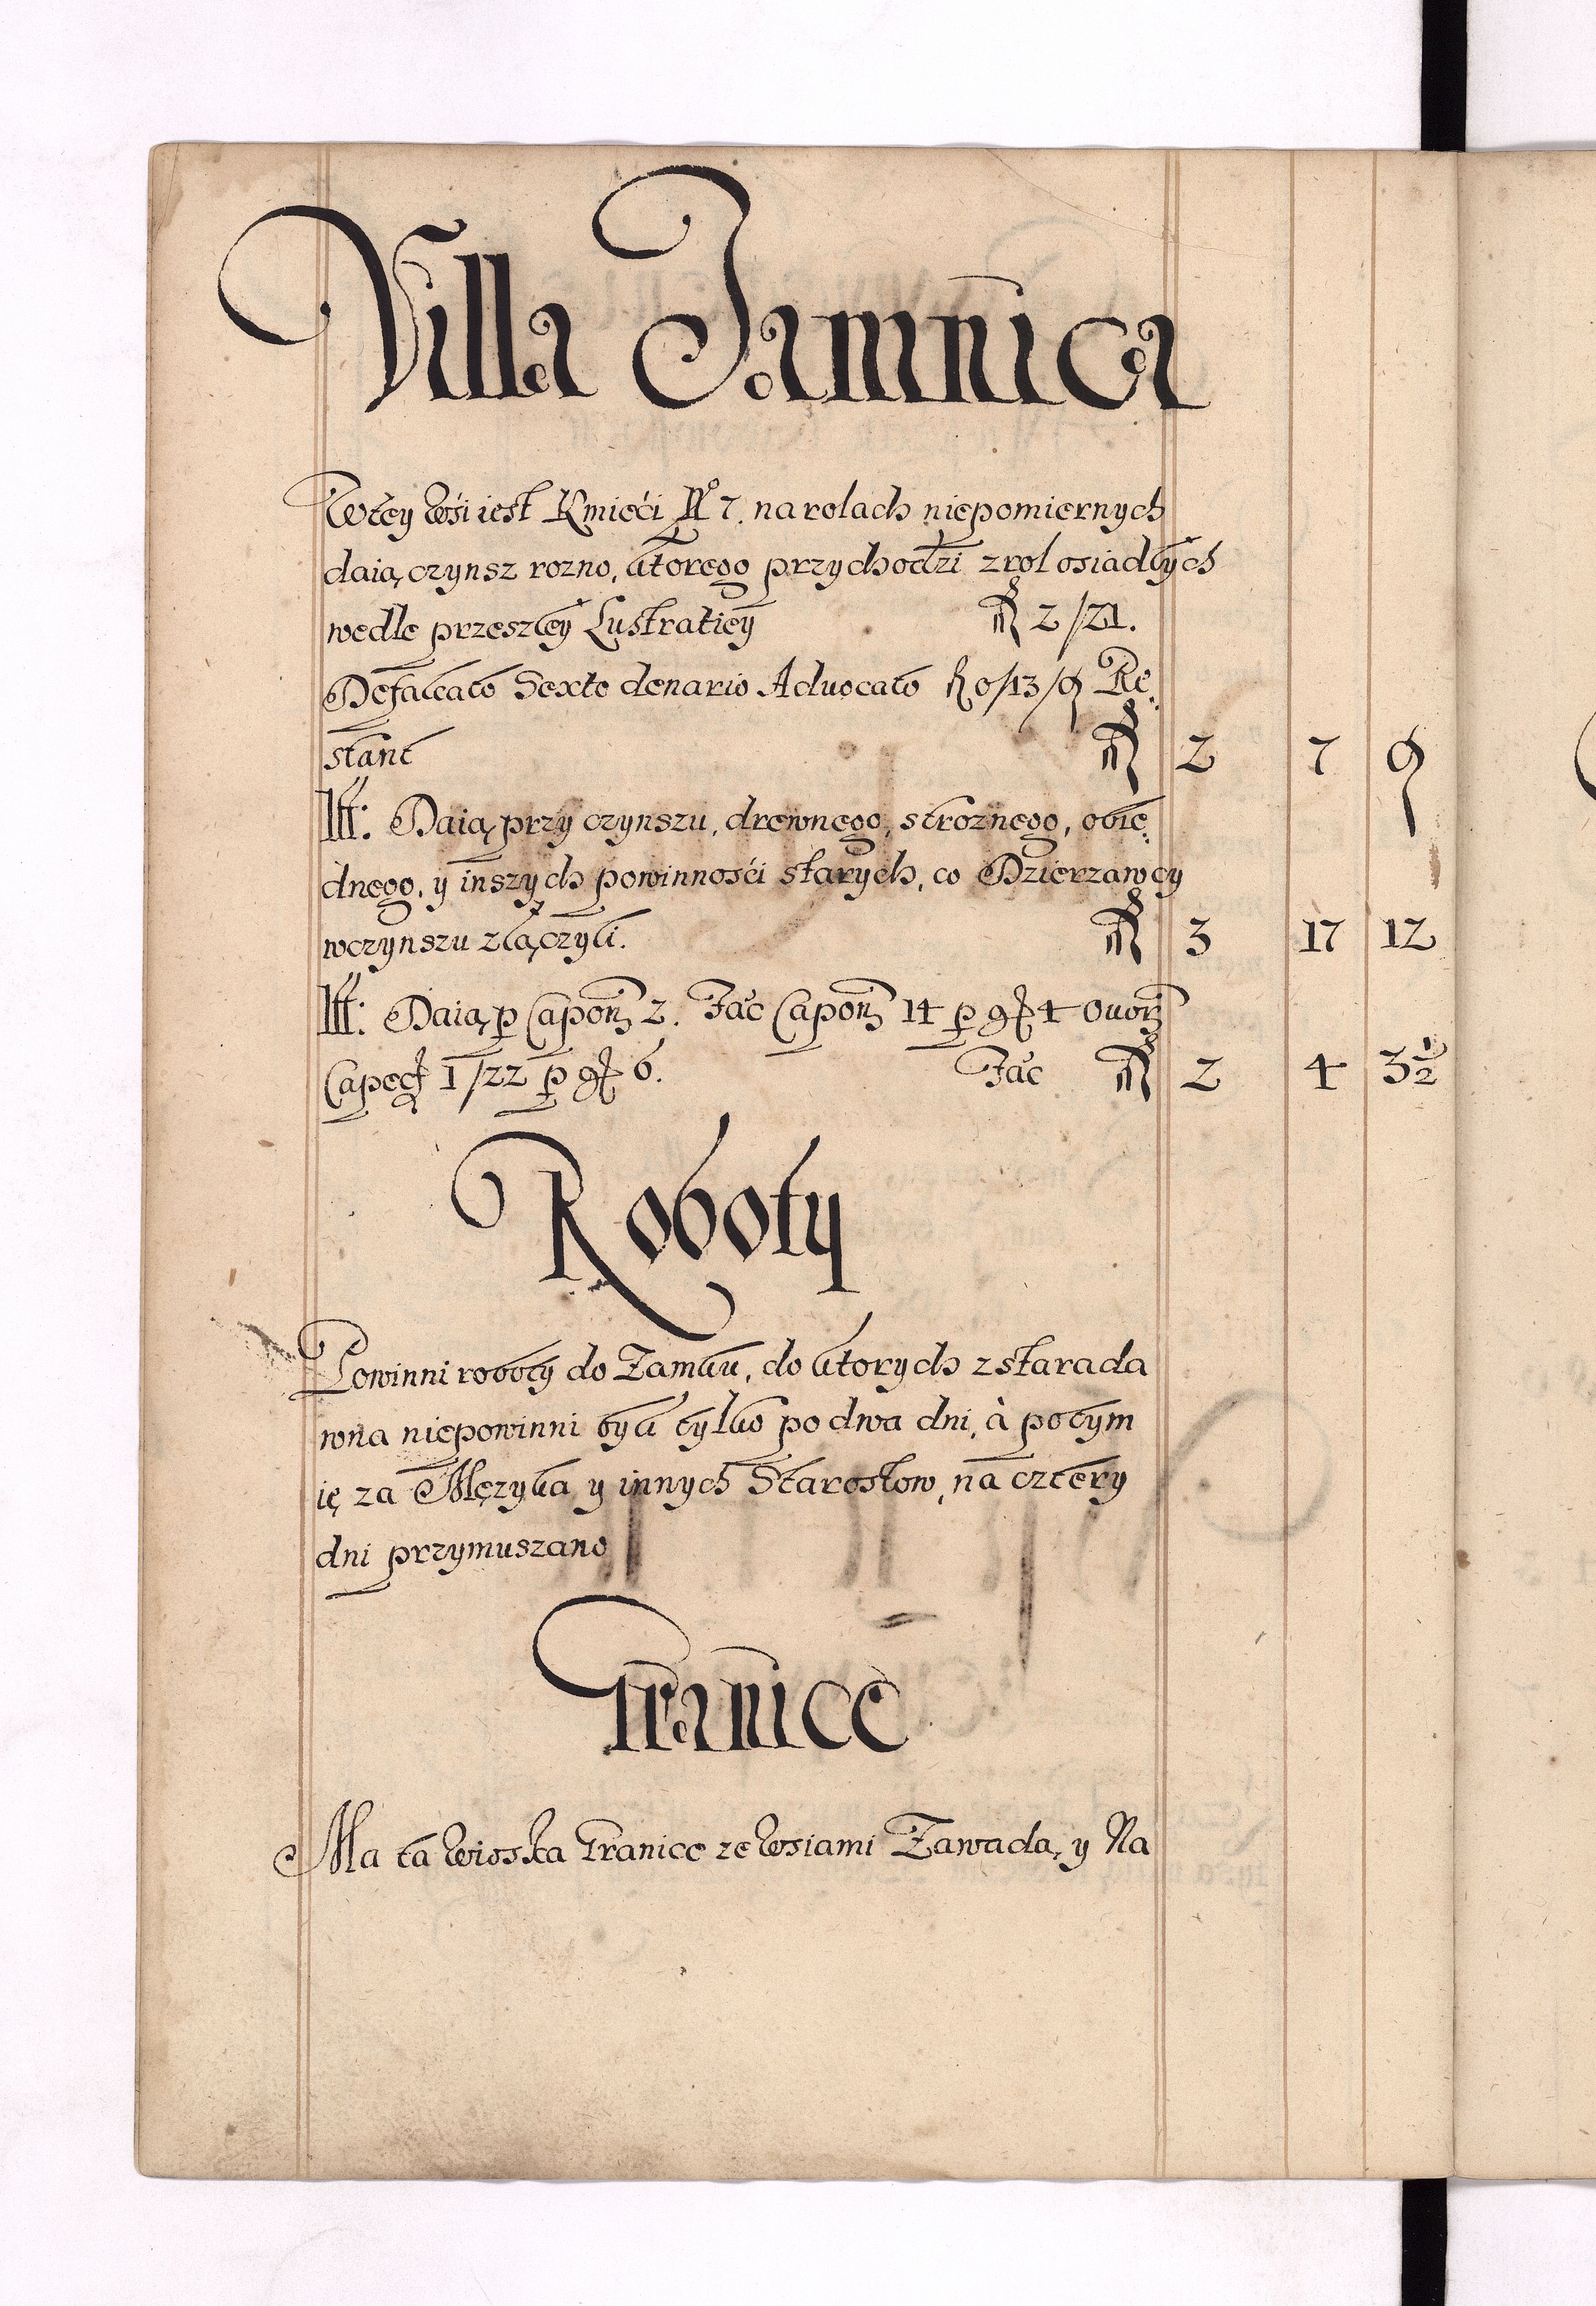 Villa Jamnica
W tey wsi iest Kmieći No 7. na rolach niepomiernych
daią czynsz rozno, ktorego przychodzi z rol osiadłych
wedle przeszłey Lustratiey 2/21.
Defalcato Sexto denario Advocato 0/13/9 Re
stant 2 7 9
Itt: Daią przy czynszu, drewnego, stroznego, obie
dnego, y inszych powinnośći starych, co Dzierzawcy
w czynszu złączyli. 3 17 12
Itt: Daią p Capon 2. Fac Capon 14 p g 4 ovor
Capec 1/22 p g 6. Fac 2 4 3½
Roboty
Powinni roboty do Zamku, do ktorych z starada
wna niepowinni byli tylko po dwa dni, à potym
ię za Mężyka y innych Starostow, na cztery
dni przymuszano
Granice
Ma ta wioska Granice ze wsiami Zawada, y Na